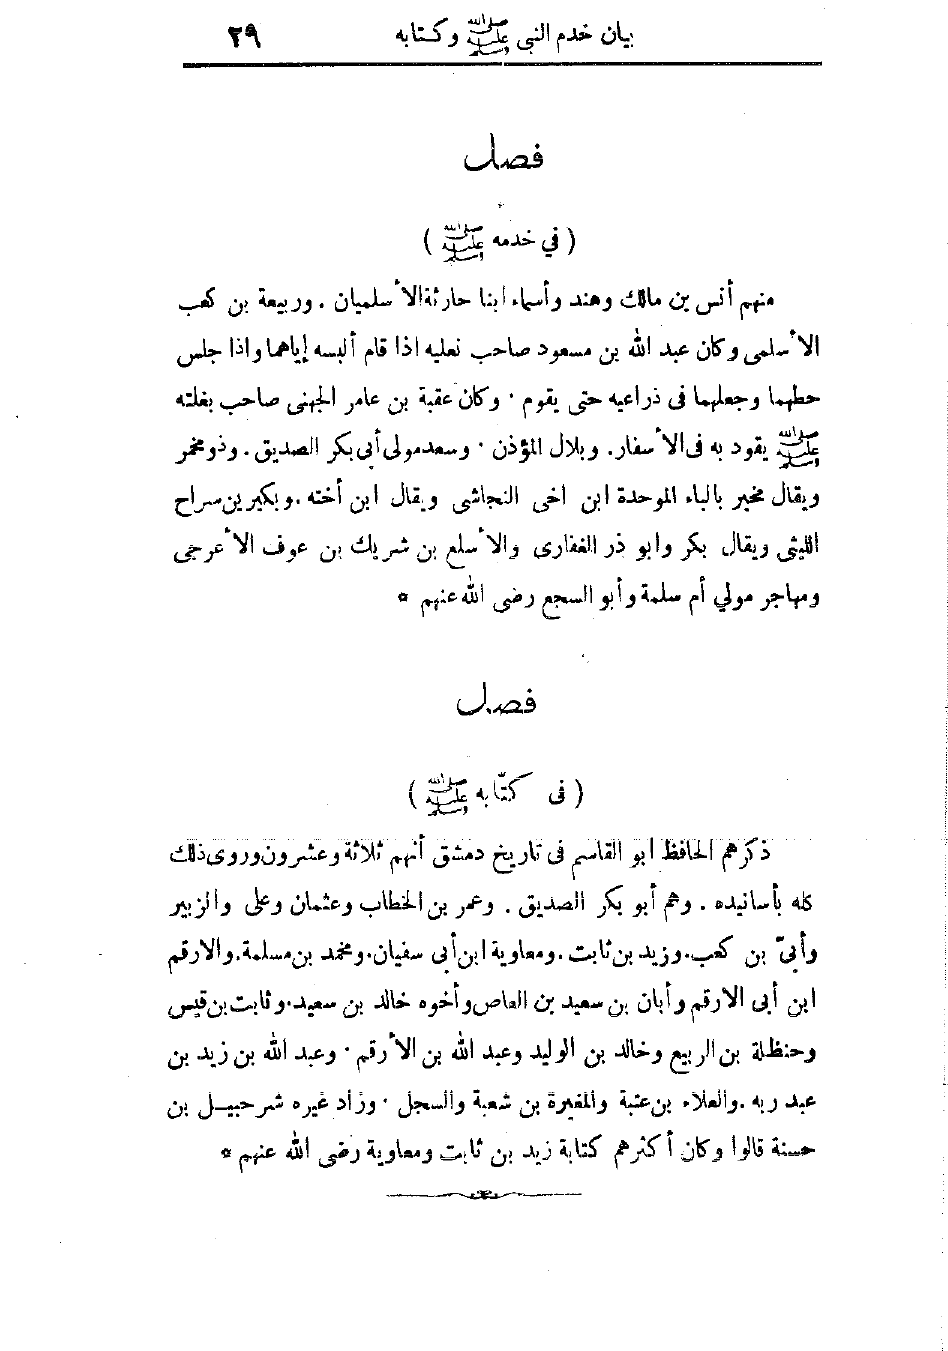 بيان خدم النبي ﷺ وكتابه ٢٩
فصل
( في خدمه ﷺ )
منهم أنس بن مالك وهند وأسماء ابنا حارثة الأسلميان . وربيعة بن كعب
الأسلمى وكان عبد الله بن مسعود صاحب نعليه اذا قام ألبسه إياهما واذا جلس
حطهما وجعلهما فى ذراعيه حتى يقوم . وكان عقبة بن عامر الجهنى صاحب بغلته
ﷺ يقود به فى الأسفار. وبلال المؤذن . وسعد مولى أبي بكر الصديق . وذو مخمر
ويقال مخبر بالباء الموحدة ابن اخى النجاشى ويقال ابن أخته . وبكير بن سراح
الليثى ويقال بكر وابو ذر الغفارى والأسلع بن شريك بن عوف الأعرجى
ومهاجر مولي أم سلمة وأبو السجع رضى الله عنهم *
فصل
( فى كتّابه ﷺ )
ذكرهم الحافظ ابو القاسم فى تاريخ دمشق أنهم ثلاثة وعشرون وروى ذلك
كله بأسانيده . وهم أبو بكر الصديق . وعمر بن الخطاب وعثمان وعلى والزبير
وأبيّ بن كعب . وزيد بن ثابت . ومعاوية ابن أبى سفيان . ومحمد بن مسلمة . والارقم
ابن أبى الارقم وأبان بن سعيد بن العاص وأخوه خالد بن سعيد . وثابت بن قيس
وحنظلة بن الربيع وخالد بن الوليد وعبد الله بن الأرقم . وعبد الله بن زيد بن
عبد ربه . والعلاء بن عتبة والمغيرة بن شعبة والسجل . وزاد غيره شرحبيل بن
حسنة قالوا وكان أكثرهم كتابة زيد بن ثابت ومعاوية رضى الله عنهم *